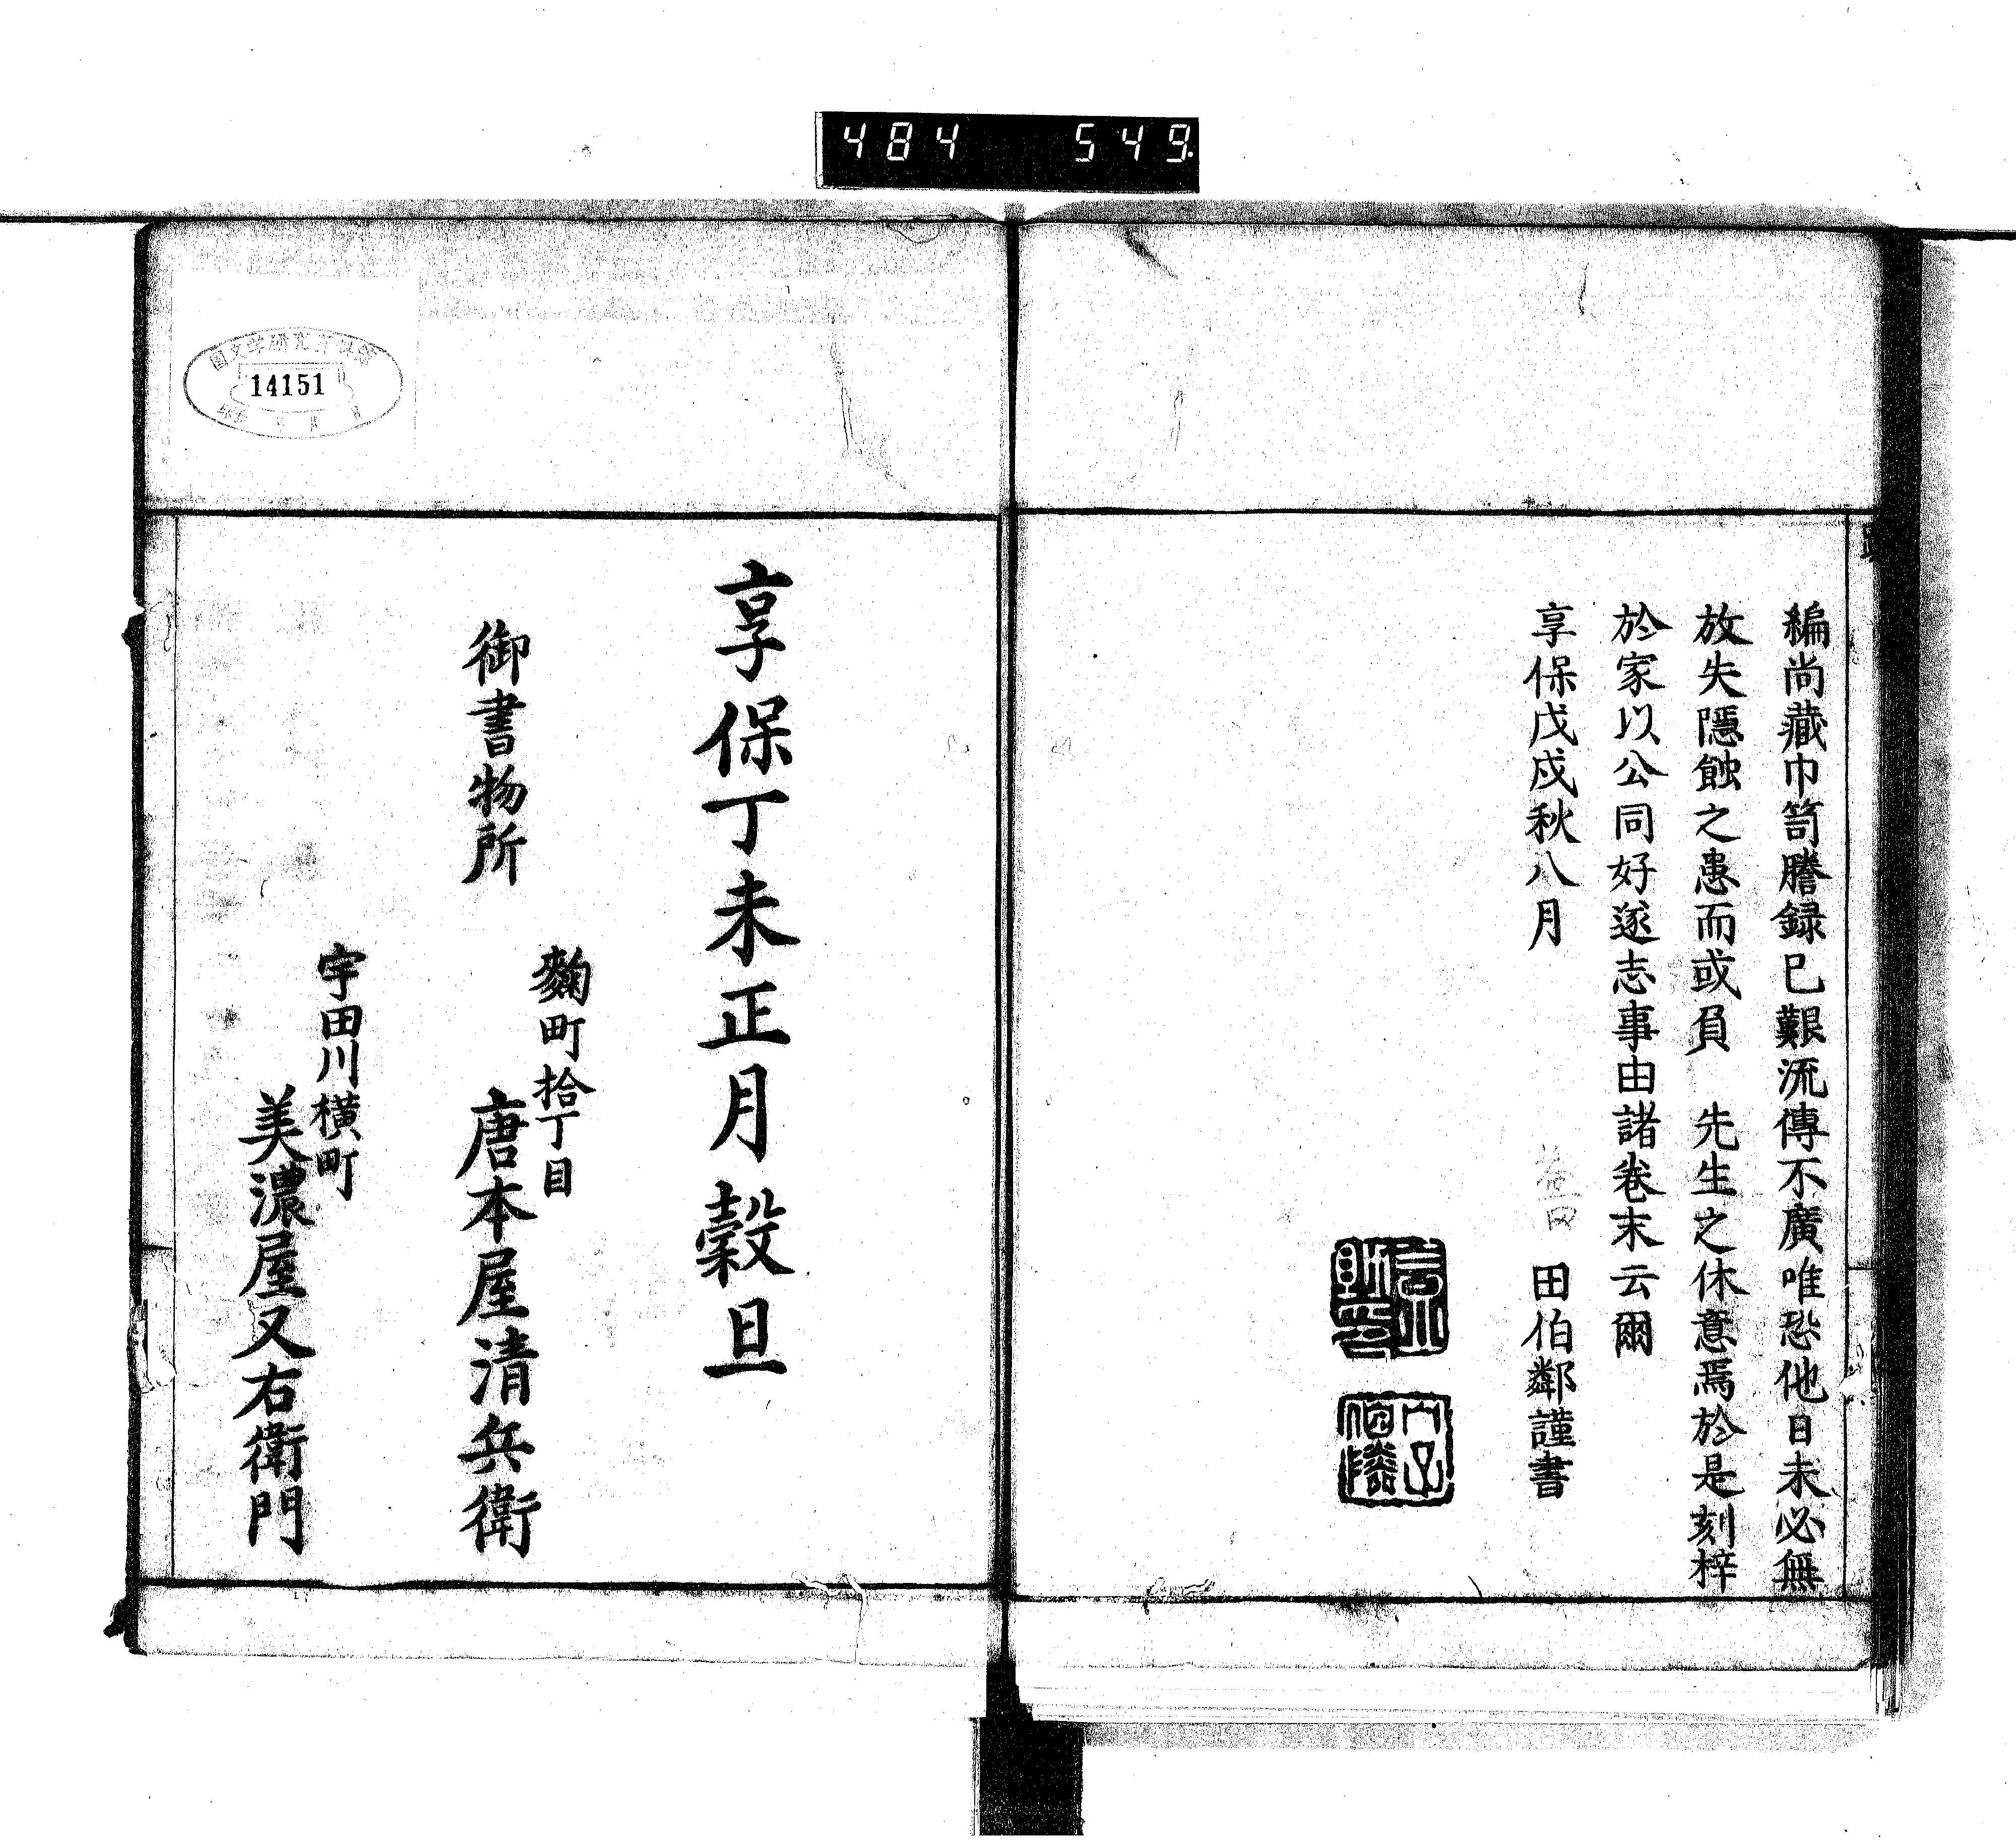 484 549.
編尚藏巾笥謄録已艱流傳不廣唯恐他日未必無
放失隱蝕之患而或負 先生之休意焉於是刻梓
於家以公同好遂志事由諸卷末云爾
享保戊戌秋八月 田伯鄰謹書
享保丁未正月穀旦
御書物所
麴町拾丁目
唐本屋清兵衛
宇田川横町
美濃屋又右衛門
国文学研究資料館
14151